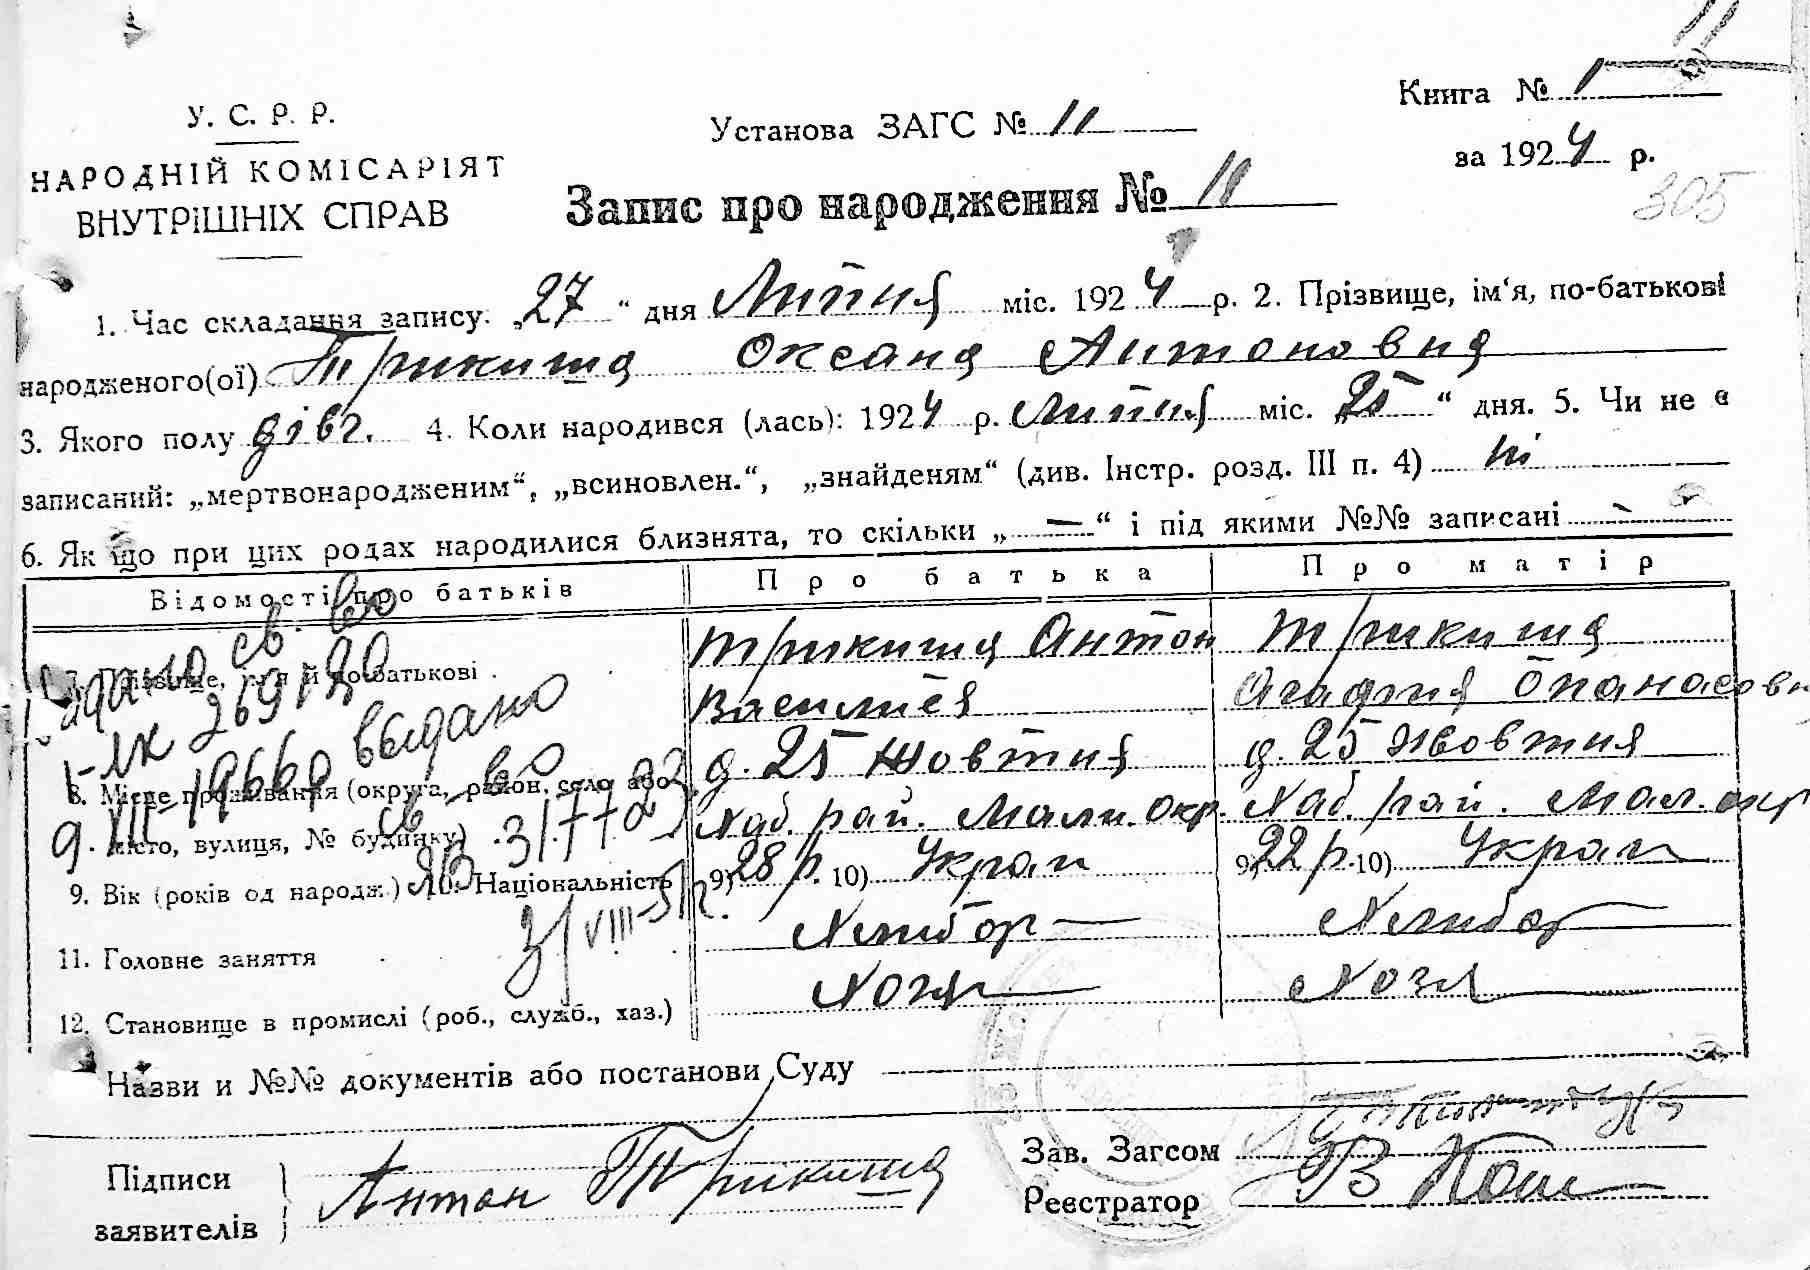 11
У. С. Р. Р.
НАРОДНІЙ КОМІСАРІЯТ
ВНУТРІШНІХ СПРАВ
Установа ЗАГС № 11
Книга № 1
за 1924 р.
305
Запис про народження № 11
1. Час складання запису: „27“ дня Липня міс. 1924 р. 2. Прізвище, ім‘я, по-батькові
народженого(ої) Трикиша Оксана Антоновна
3. Якого полу дівч. 4. Коли народився (лась): 1924 р. Липня міс. „25“ дня. 5. Чи не є
записаний: „мертвонародженим“, „всиновлен.“, „знайденям“ (див. Інстр. розд. III п. 4) ні
6. Як що при цих родах народилися близнята, то скільки „—“ і під якими №№ записані —
Відомості про батьків Про батька Про матір
7. Прізвище, ім‘я й по-батькові Трикиша Антон Трикиша
Васильев Агафия Опанасовн
8. Місце проживання (округа, район, село або д. 25 Жовтня д. 25 Жовтня
місто, вулиця, № будинку) Хаб. рай. Мали. Окр. Хаб. рай. Мал. окр
9. Вік (років од народж.) 10. Національність 9) 28 р. 10) Украи 9) 22 р. 10) Украи
11. Головне заняття Хлибор Хлибор
12. Становище в промислі (роб., служб., хаз.) Хозя Хозя
св. во
выдано
св-во
Назви и №№ документів або постанови Суду
Підписи
заявителів
Антон Трикиша
Зав. Загсом
Реєстратор